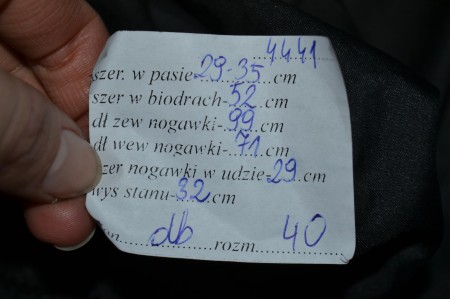 4441
szer. w pasie 29-35 cm
szer w biodrach- 52 cm
dł zew nogawki- 99 cm
dł wew nogawki- 71 cm
szer nogawki w udzie- 29 cm
wys stanu- 32 cm
db rozm 40